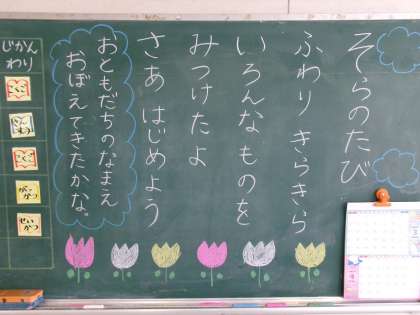 そらのたび
ふわり きらきら
いろんな ものを
みつけたよ
さあ はじめよう
おともだちのなまえ
おぼえてきたかな。
じかん
わり
こくご
こくご
せいかつ